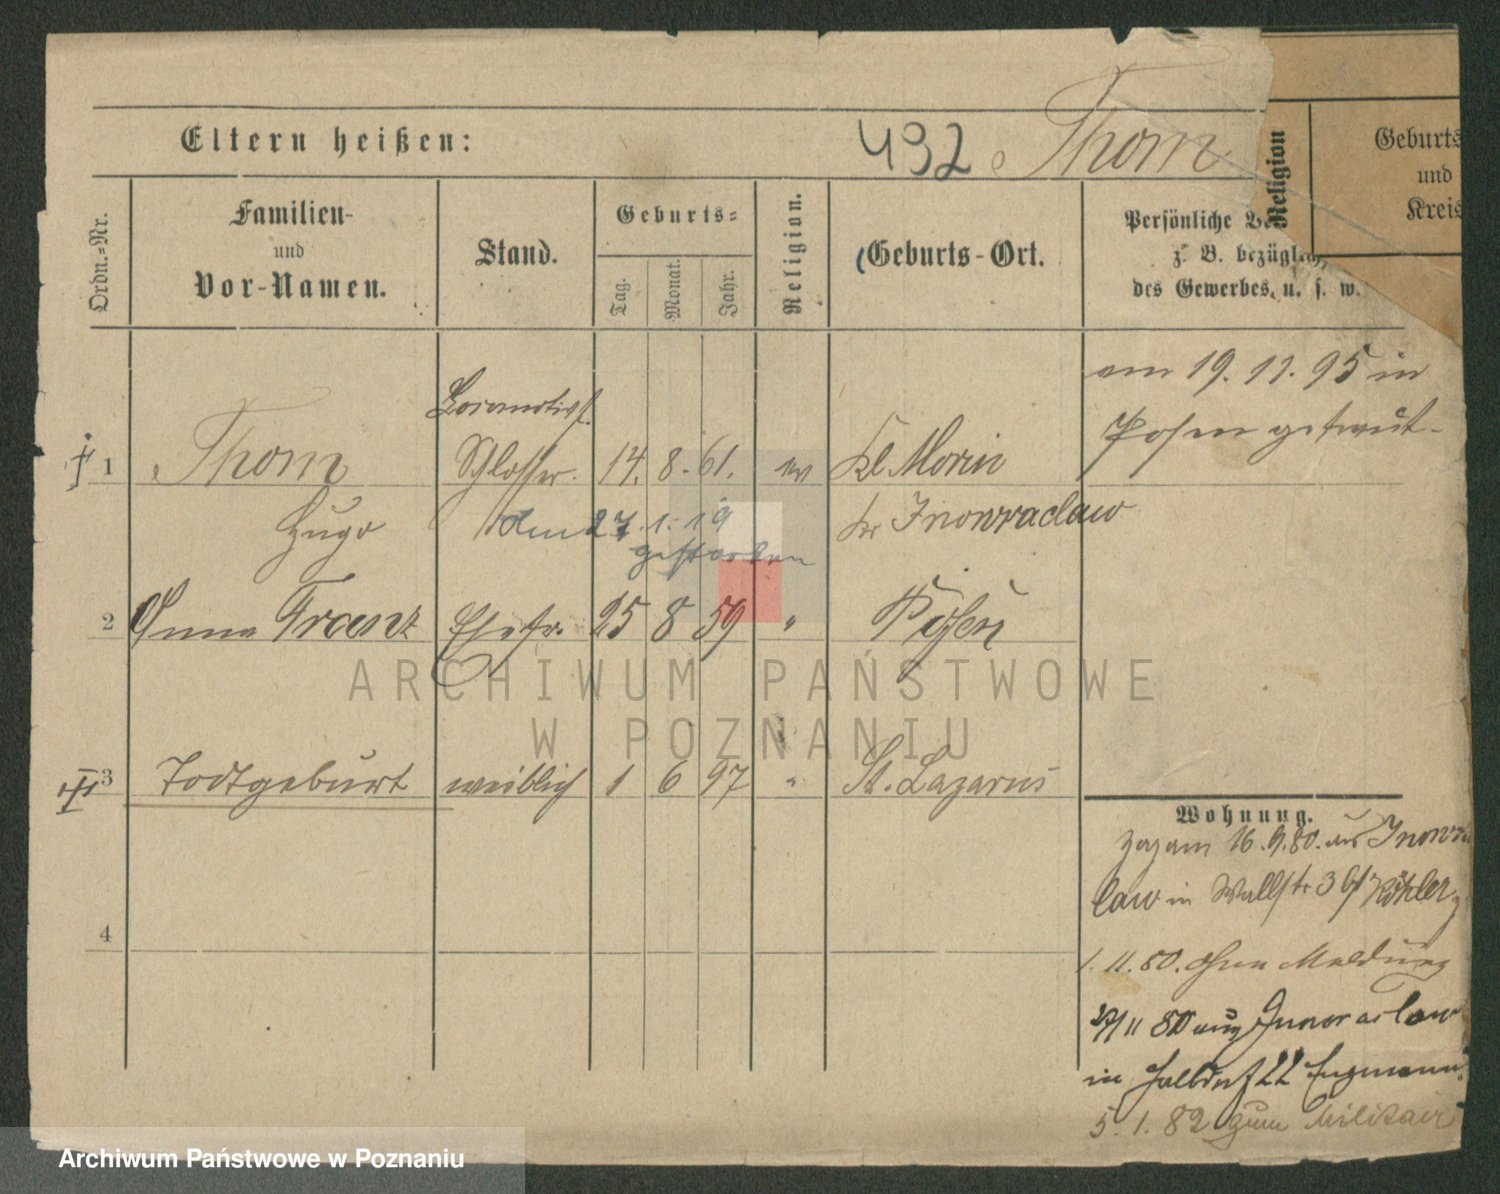 Eltern heißen:
432 Thom
Ordn.-Nr.
Familien-
und
Vor-Namen.
Stand.
Geburts-
Tag.
Monat.
Jahr.
Religion.
Geburts-Ort.
Persönliche
z. B. bezüglich
des Gewerbes, u. s. w.
Religion
Geburts
und
Kreis
am 19.11.95 in
Posen getraut.
1 Thom Schlosser. 14. 8. 61. ev Kl Morin
Hugo
Kr Inowraclaw
den 27.1.19
gestorben
2 Anna Franz Ehefr. 25 8 59 " Posen
3 Todtgeburt weiblich 1 6 97 " St. Lazarus
4
Wohnung.
Zugam 16.9.80. aus Inowra
law in Wallstr 3 bf Köhler
1.11.80. ohne Meldung
27/11 80 aus Inowraclaw
in Halbdorf 22
5.1.82 zum Militair
ARCHIWUM PAŃSTWOWE
W POZNANIU
Archiwum Państwowe w Poznaniu